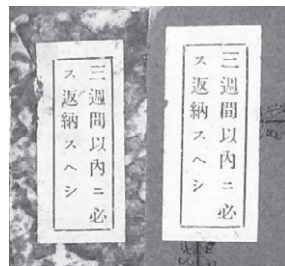 三週間以内ニ必
ス返納スヘシ
三週間以内ニ必
ス返納スヘシ